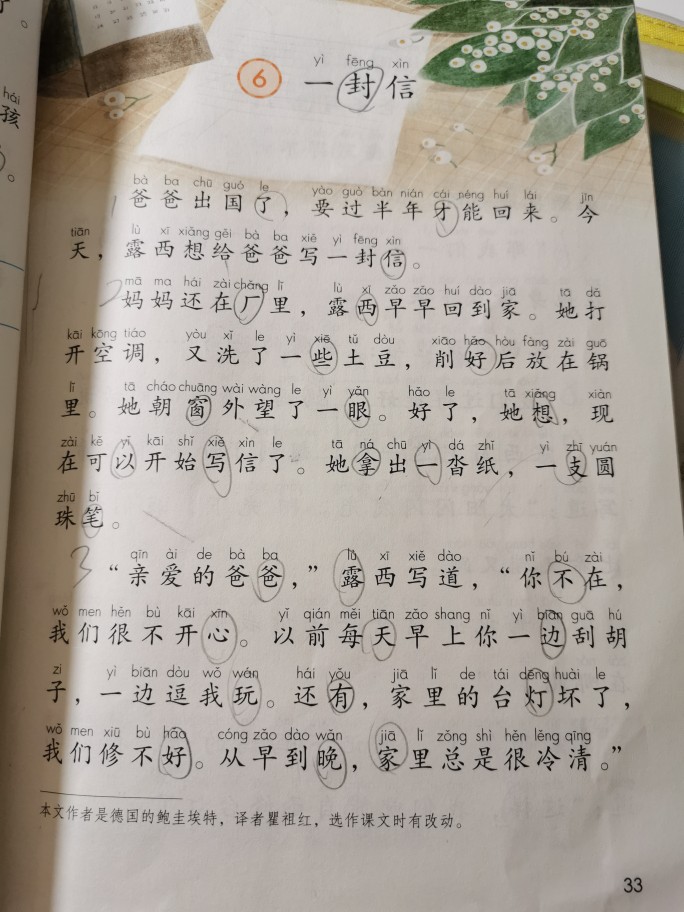 hái
孩
yì fēng xìn
6 一封信
bà ba chū guó le yào guò bàn nián cái néng huí lái jīn
1 爸爸出国了，要过半年才能回来。今
tiān lù xī xiǎng gěi bà ba xiě yì fēng xìn
天，露西想给爸爸写一封信。
mā ma hái zài chǎng lǐ lù xī zǎo zǎo huí dào jiā tā dǎ
2 妈妈还在厂里，露西早早回到家。她打
kāi kōng tiáo yòu xǐ le yì xiē tǔ dòu xiāo hǎo hòu fàng zài guō
开空调，又洗了一些土豆，削好后放在锅
lǐ tā cháo chuāng wài wàng le yì yǎn hǎo le tā xiǎng xiàn
里。她朝窗外望了一眼。好了，她想，现
zài kě yǐ kāi shǐ xiě xìn le tā ná chū yì dá zhǐ yì zhī yuán
在可以开始写信了。她拿出一沓纸，一支圆
zhū bǐ
珠笔。
qīn ài de bà ba lù xī xiě dào nǐ bú zài
3 “亲爱的爸爸，”露西写道，“你不在，
wǒ men hěn bù kāi xīn yǐ qián měi tiān zǎo shang nǐ yì biān guā hú
我们很不开心。以前每天早上你一边刮胡
zi yì biān dòu wǒ wán hái yǒu jiā lǐ de tái dēng huài le
子，一边逗我玩。还有，家里的台灯坏了，
wǒ men xiū bù hǎo cóng zǎo dào wǎn jiā lǐ zǒng shì hěn lěng qīng
我们修不好。从早到晚，家里总是很冷清。”
本文作者是德国的鲍圭埃特，译者瞿祖红，选作课文时有改动。
33